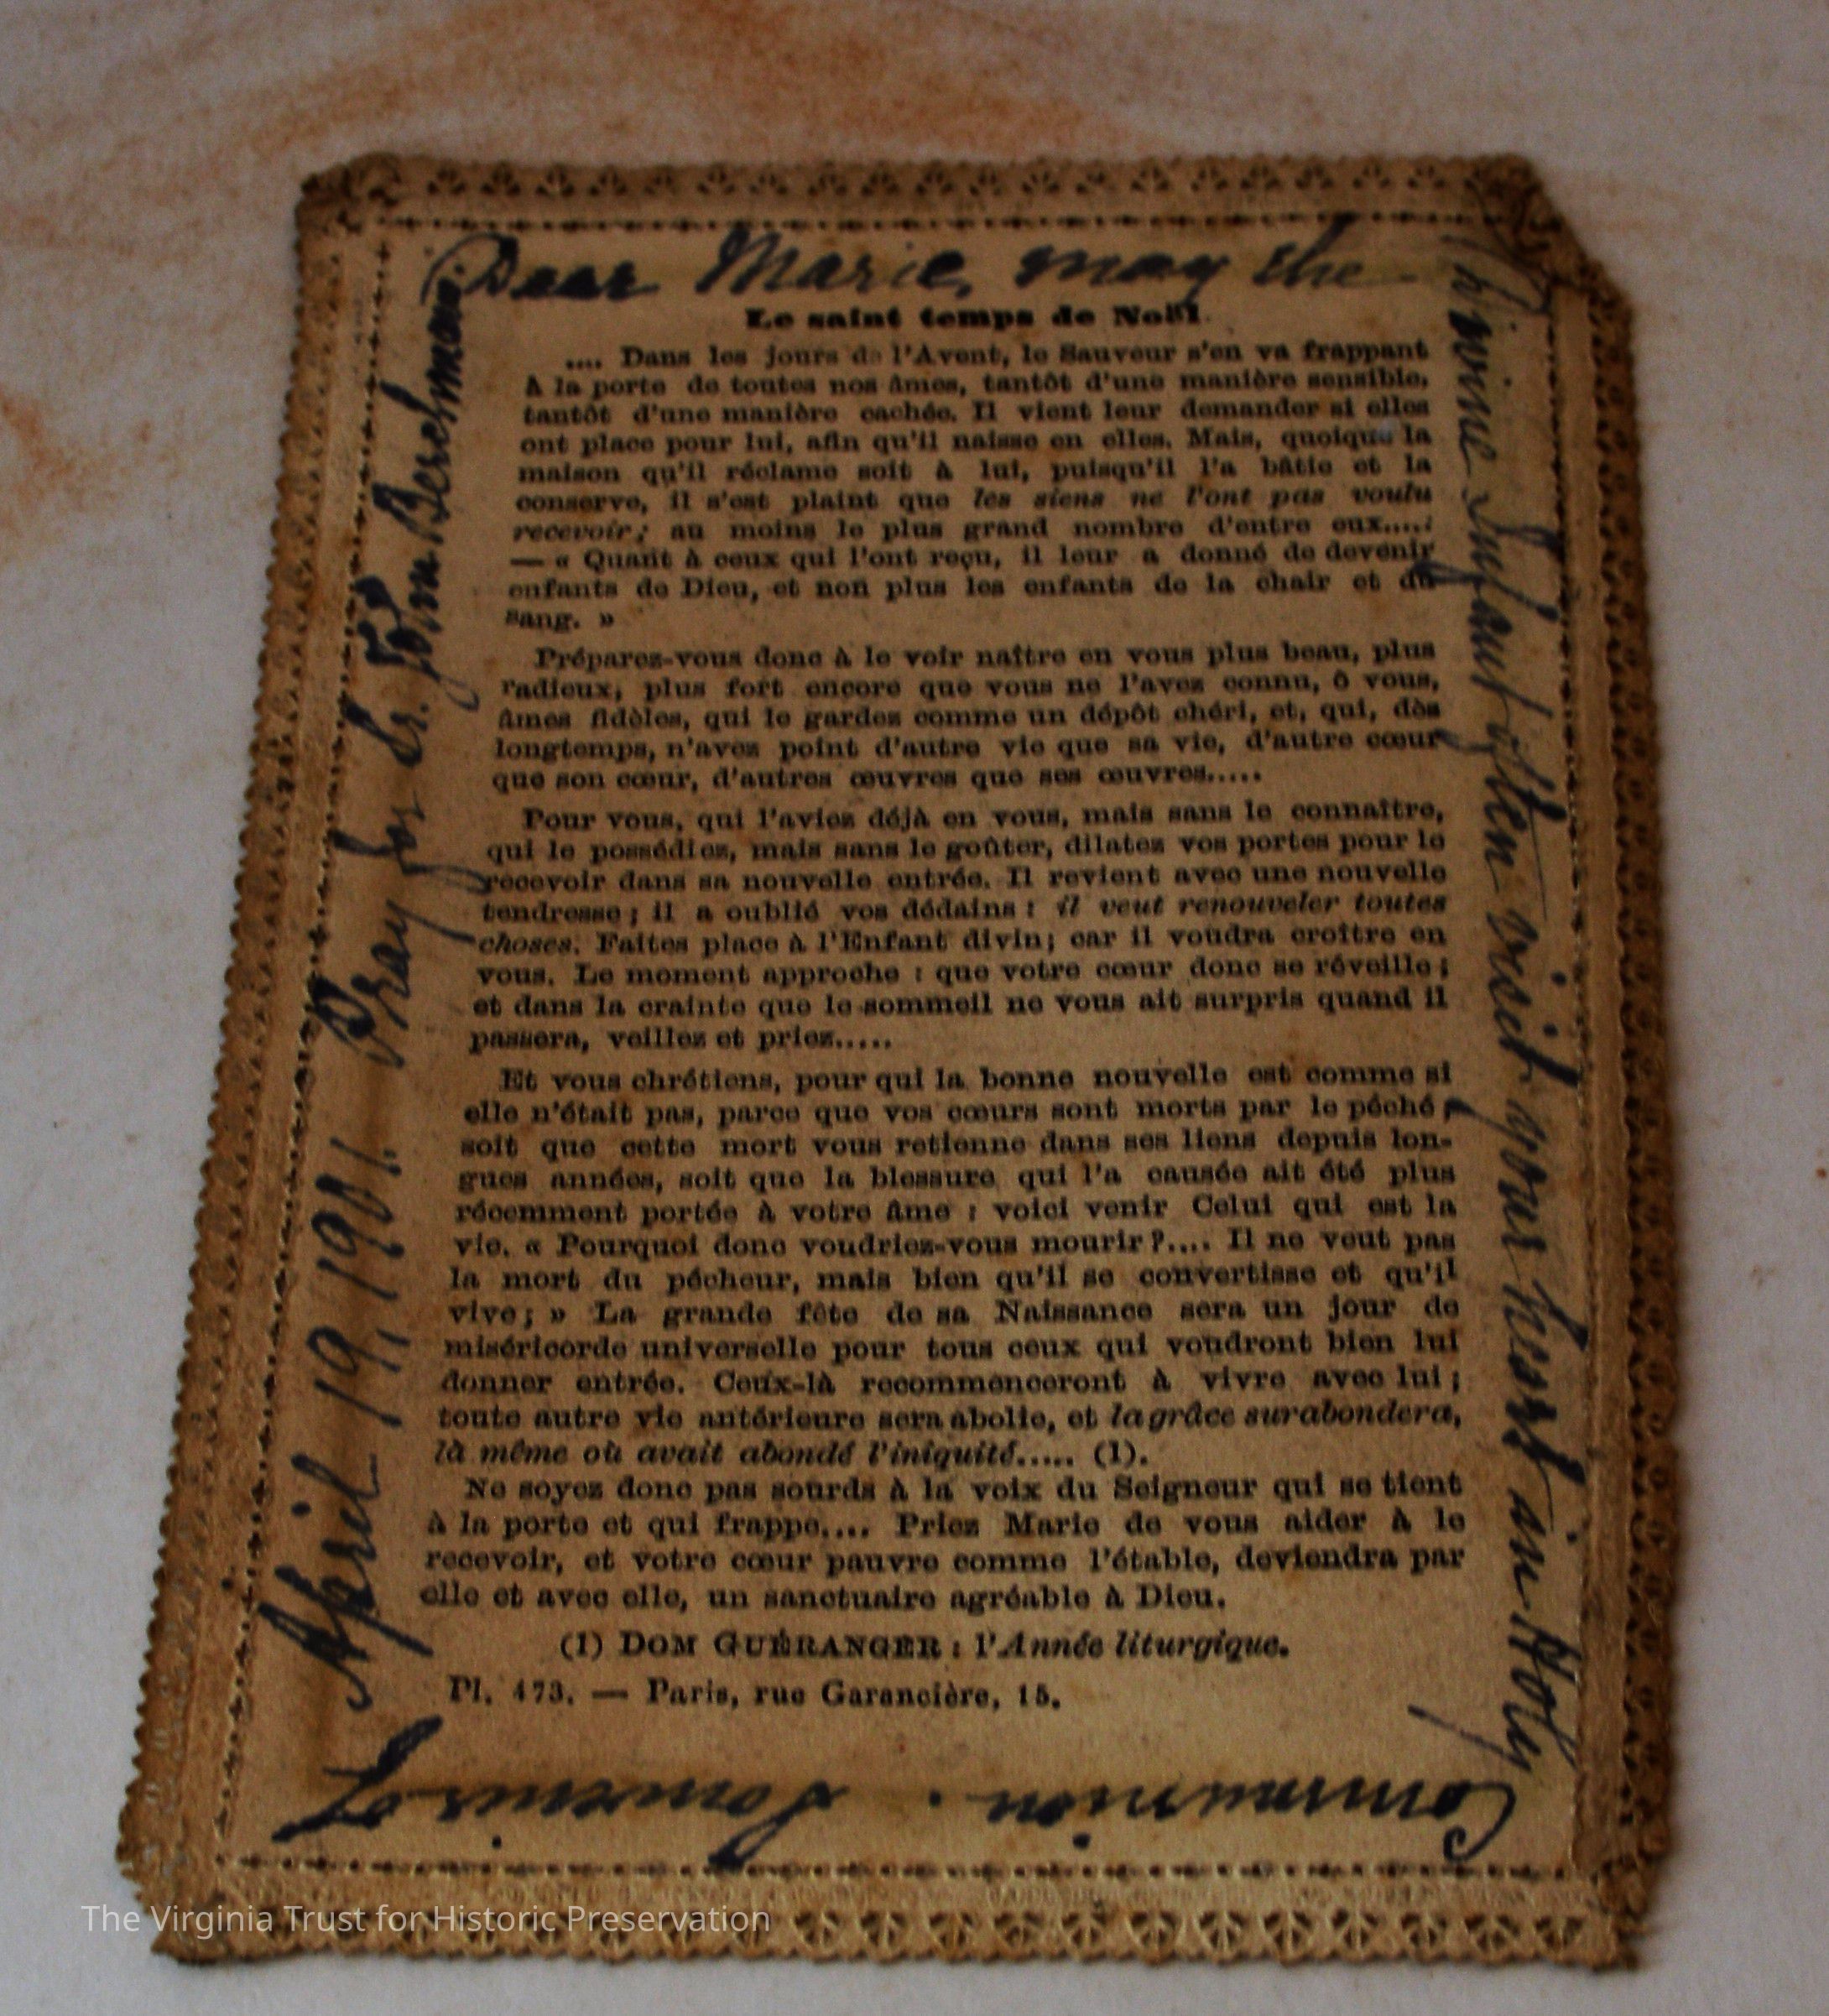 Dear Marie, may the
Divine Infant often visit your heart in Holy
Communion. Souvenir of
April 19, 1901. Pray for Sr. John Berchmans.
Le saint temps de Noël
.... Dans les jours de l'Avent, le Sauveur s'en va frappant
à la porte de toutes nos âmes, tantôt d'une manière sensible,
tantôt d'une manière cachée. Il vient leur demander si elles
ont place pour lui, afin qu'il naisse en elles. Mais, quoique la
maison qu'il réclame soit à lui, puisqu'il l'a bâtie et la
conserve, il s'est plaint que les siens ne l'ont pas voulu
recevoir; au moins le plus grand nombre d'entre eux....:
— « Quant à ceux qui l'ont reçu, il leur a donné de devenir
enfants de Dieu, et non plus les enfants de la chair et du
sang. »
Préparez-vous donc à le voir naître en vous plus beau, plus
radieux, plus fort encore que vous ne l'avez connu, ô vous,
âmes fidèles, qui le gardez comme un dépôt chéri, et, qui, dès
longtemps, n'avez point d'autre vie que sa vie, d'autre cœur
que son cœur, d'autres œuvres que ses œuvres.....
Pour vous, qui l'aviez déjà en vous, mais sans le connaître,
qui le possédiez, mais sans le goûter, dilatez vos portes pour le
recevoir dans sa nouvelle entrée. Il revient avec une nouvelle
tendresse; il a oublié vos dédains : il veut renouveler toutes
choses. Faites place à l'Enfant divin; car il voudra croître en
vous. Le moment approche : que votre cœur donc se réveille;
et dans la crainte que le sommeil ne vous ait surpris quand il
passera, veillez et priez.....
Et vous chrétiens, pour qui la bonne nouvelle est comme si
elle n'était pas, parce que vos cœurs sont morts par le péché;
soit que cette mort vous retienne dans ses liens depuis lon-
gues années, soit que la blessure qui l'a causée ait été plus
récemment portée à votre âme : voici venir Celui qui est la
vie. « Pourquoi donc voudriez-vous mourir?.... Il ne veut pas
la mort du pécheur, mais bien qu'il se convertisse et qu'il
vive; » La grande fête de sa Naissance sera un jour de
miséricorde universelle pour tous ceux qui voudront bien lui
donner entrée. Ceux-là recommenceront à vivre avec lui;
toute autre vie antérieure sera abolie, et la grâce surabondera,
là même où avait abondé l'iniquité..... (1).
Ne soyez donc pas sourds à la voix du Seigneur qui se tient
à la porte et qui frappe.... Priez Marie de vous aider à le
recevoir, et votre cœur pauvre comme l'étable, deviendra par
elle et avec elle, un sanctuaire agréable à Dieu.
(1) DOM GUÉRANGER : l'Année liturgique.
Pl. 473. — Paris, rue Garancière, 15.
The Virginia Trust for Historic Preservation